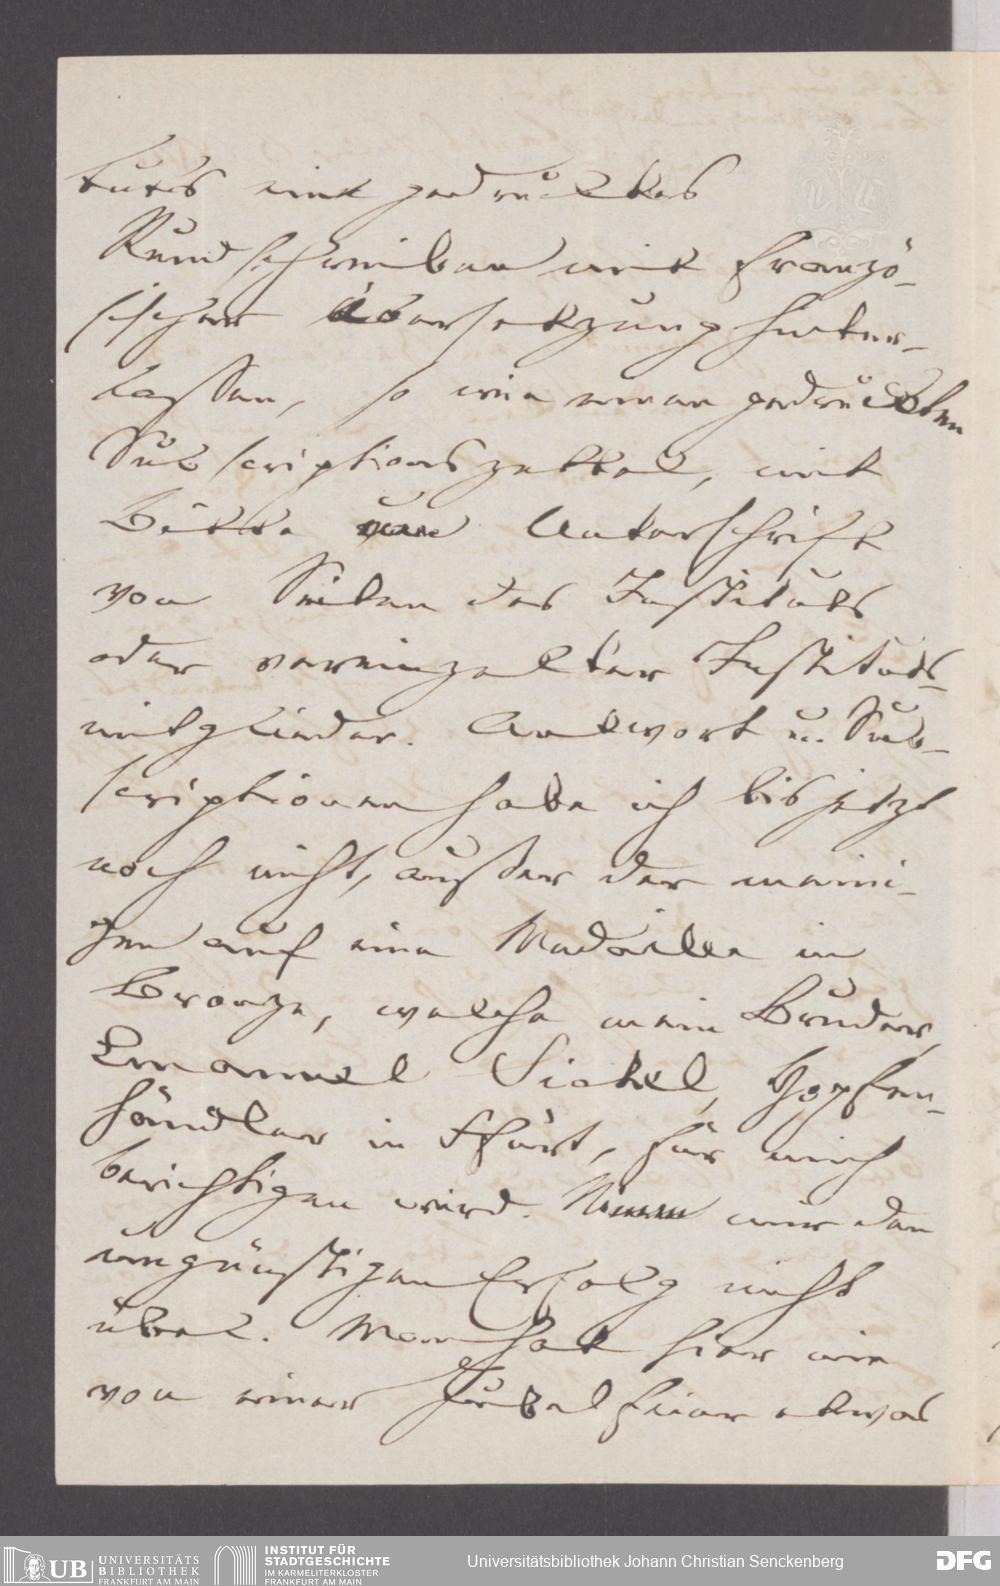 tutes ein gedrucktes
Rundschreiben mit französ-
sischer Übersetzung hinter-
lassen, so wie einen gedruckten
Subscriptionszettel, mit
Bitte um Unterschrift
von Seiten des Instituts
oder vereinzelter Instituts-
mitglieder. Antwort u. Sub-
scriptionen habe ich bis jetzt
noch nicht, außer der meini-
gen auf eine Medaille in
Bronze, welche mein Bruder,
Emanuel Sichel, Hopfen-
händler in Ffurt, für mich
berichtigen wird. Nimm mir den
ungünstigen Erfolg nicht
übel. Man hat hier nie
von einer Jubelfeier etwas
UB UNIVERSITÄTS
BIBLIOTHEK
FRANKFURT AM MAIN
INSTITUT FÜR
STADTGESCHICHTE
IM KARMELITERKLOSTER
FRANKFURT AM MAIN
Universitätsbibliothek Johann Christian Senckenberg
DFG